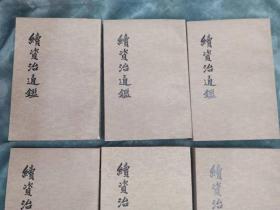 續資治通鑑
續資治通鑑
續資治通鑑
續資治
續資治
續資治